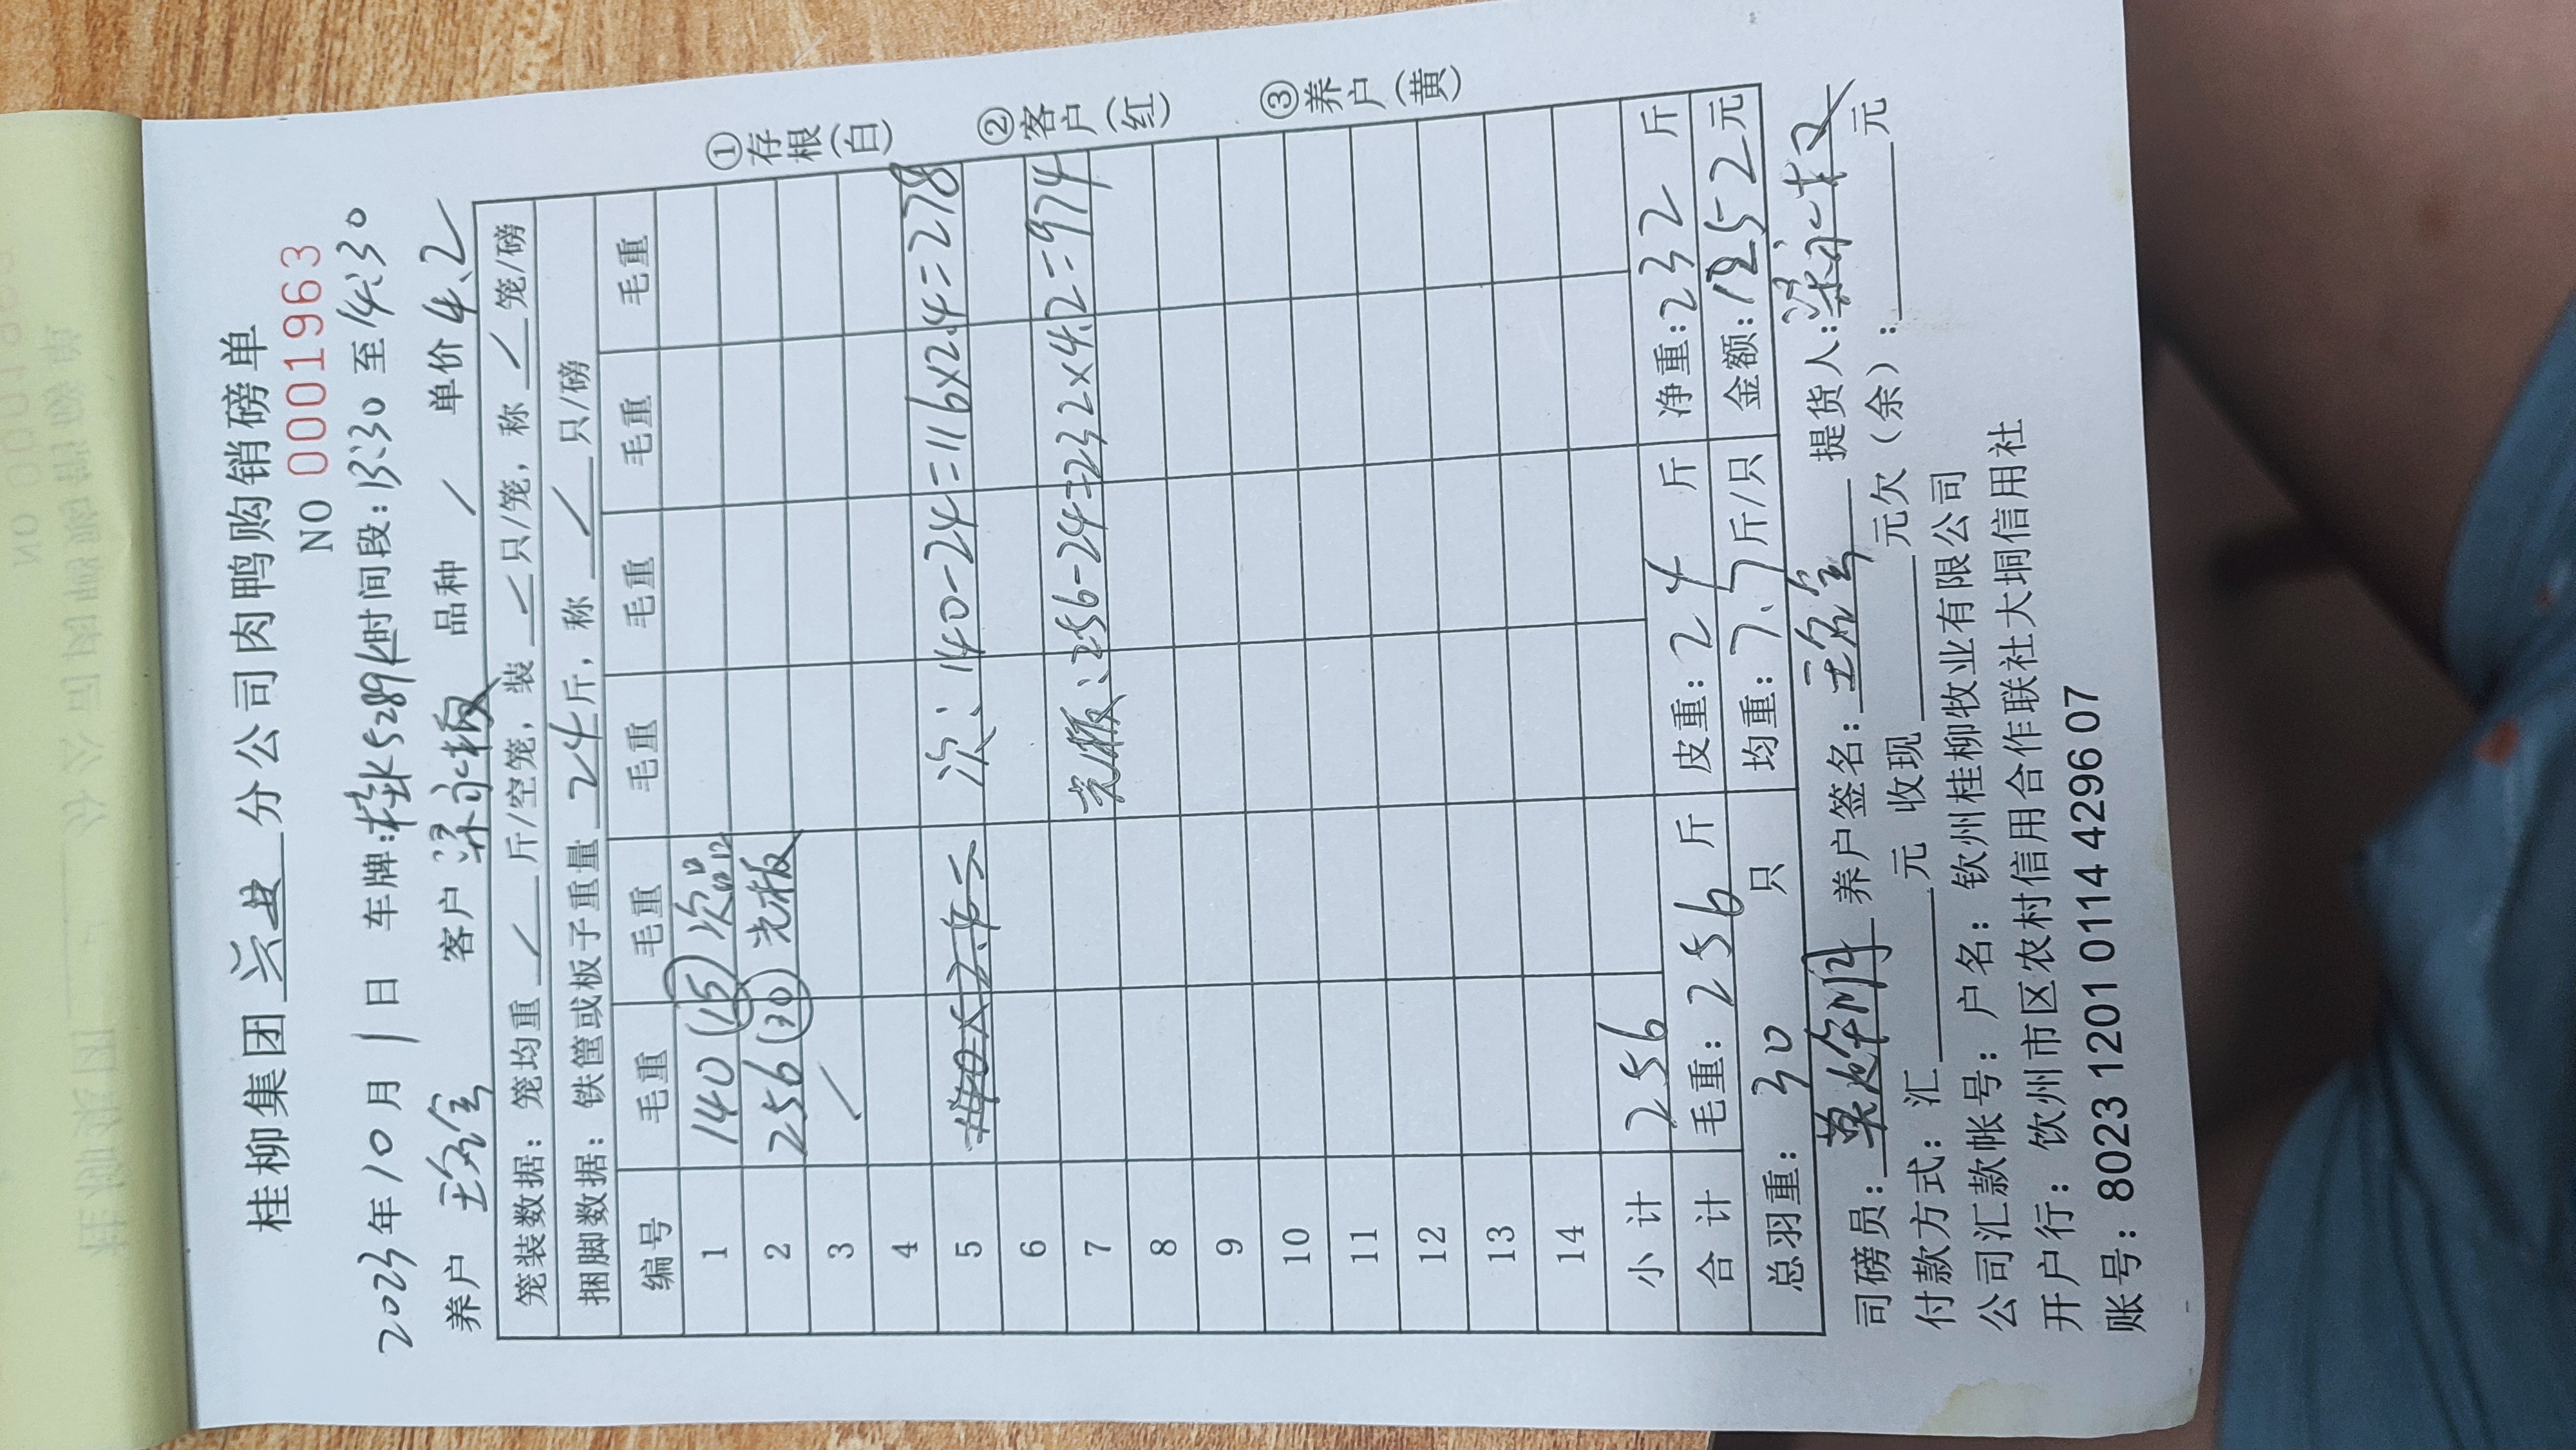 桂柳集团 兴业 分公司肉鸭购销磅单
NO 0001963
2023年10月1日 车牌:桂K5289 时间段:13:30至14:30
养户 客户 梁永权 品种 / 单价 4.2
笼装数据：笼均重 / 斤/空笼，装 / 只/笼，称 / 笼/磅
捆脚数据：铁筐或板子重量 24 斤，称 / 只/磅
编号 毛重 毛重 毛重 毛重 毛重 毛重
1 140 (15) 次品
2 256 (30) 光板
3 /
4
5 次: 140-24=116x2.4=278
6
7 光板: 256-24=232x4.2=974
8
9
10
11
12
13
14
小计 256
合计 毛重: 256 斤 皮重: 24 斤 净重: 232 斤
总羽重: 30 只 均重: 7.7 斤/只 金额: 1252 元
司磅员: 养户签名: 提货人: 梁永权
付款方式: 汇 元 收现 元欠（余）: 元
公司汇款帐号：户名：钦州桂柳牧业有限公司
开户行：饮州市区农村信用合作联社大垌信用社
账号：8023 1201 0114 4296 07
①存根(白)
②客户(红)
③养户(黄)